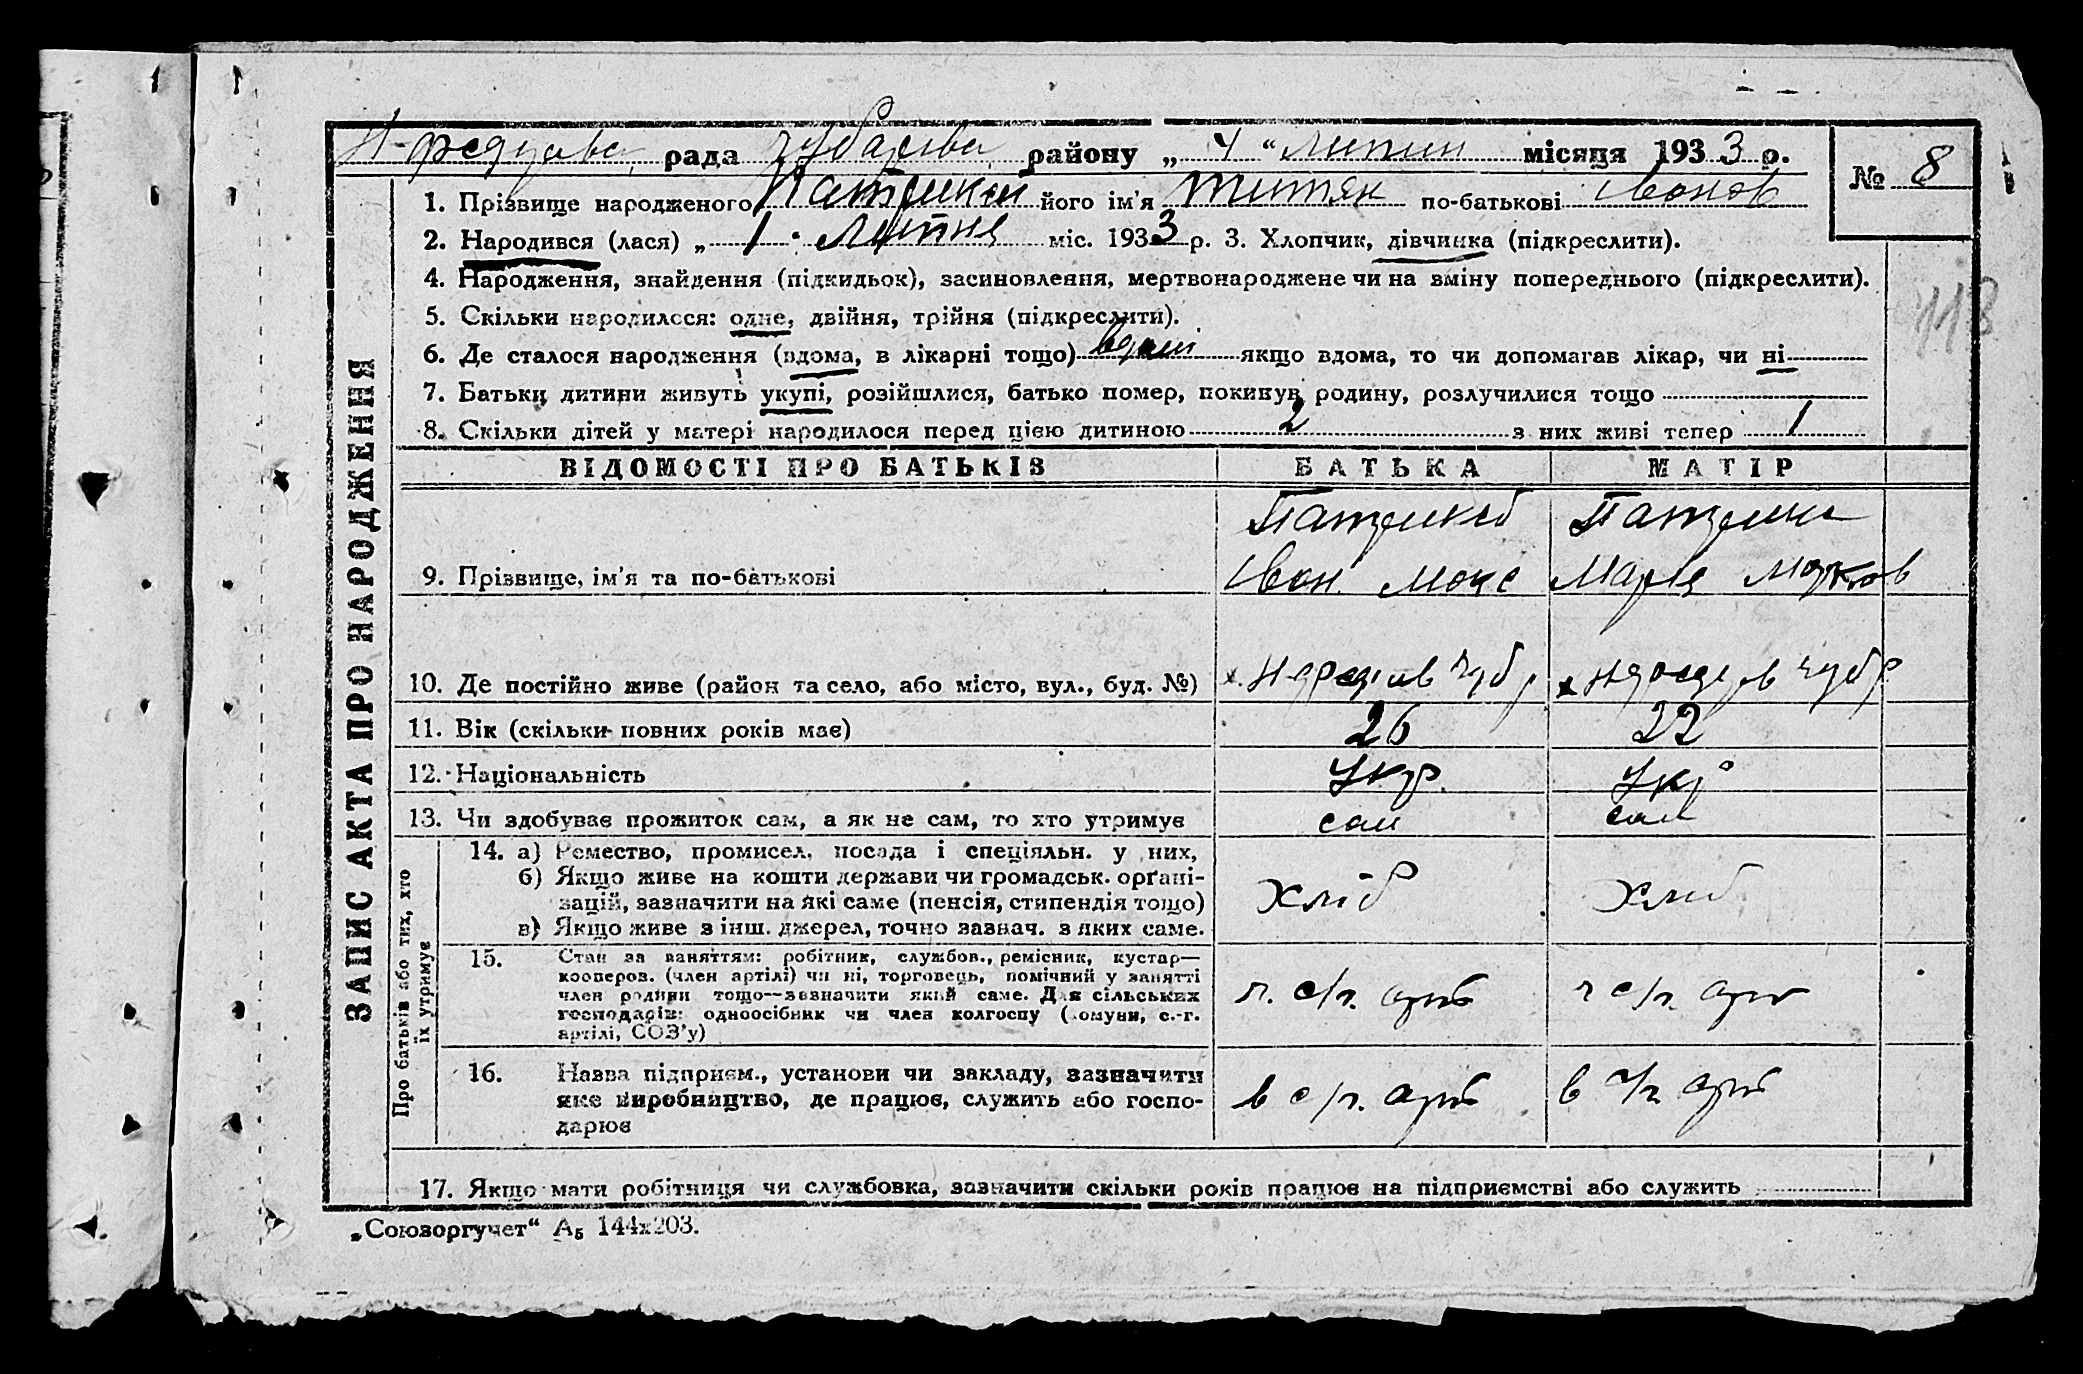 рада районy „ 4 “ липня місяця 1933 р.
№ 8
1. Прізвище народженого його ім'я по-батькові Іванов
2. Народився (лася) „ 1 . Липня міс. 1933 р. 3. Хлопчик, дівчинка (підкреслити).
4. Народження, знайдення (підкидьок), засиновлення, мертвонароджене чи на зміну попереднього (підкреслити).
113
5. Скільки народилося: одне, двійня, трійня (підкреслити).
6. Де сталося народження (вдома, в лікарні тощо) вдомі якщо вдома, то чи допомагав лікар, чи ні
7. Батьки дитини живуть укупі, розійшлися, батько помер, покинув родину, розлучилися тощо
8. Скільки дітей у матері народилося перед цією дитиною 2 з них живі тепер 1
ЗАПИС АКТА ПРО НАРОДЖЕННЯ
ВІДОМОСТІ ПРО БАТЬКІВ БАТЬКА МАТІР
9. Прізвище, ім'я та по-батькові Іван Марія
10. Де постійно живе (район та село, або місто, вул., буд. №)
11. Вік (скільки повних років має) 26 22
12. Національність Укр. Укр
13. Чи здобуває прожиток сам, а як не сам, то хто утримує сам сам
Про батьків або тих, хто
їх утримує
14. а) Ремество, промисел, посада і спеціяльн. у них,
б) Якщо живе на кошти держави чи громадськ. орґані-
зацій, зазначити на які саме (пенсія, стипендія тощо) хліб хліб
в) Якщо живе з інш. джерел, точно зазнач. з яких саме.
15. Стан за заняттям: робітник, службов., ремісник, кустар—
кооперов. (член артілі) чи ні, торговець, помічний у занятті
член родини тощо—зазначити який саме. Для сільських ч. с/г. арт ч с/г. арт
господарів: одноосібник чи член колгоспу (комуни, с.-г.
артілі, СОЗ'у)
16. Назва підприєм., установи чи закладу, зазначити
яке виробництво, де працює, служить або госпо- в с/г. арт в с/г арт
дарює
17. Якщо мати робітниця чи службовка, зазначити скільки років працює на підприємстві або служить
„Союзоргучет“ А₅ 144x203.